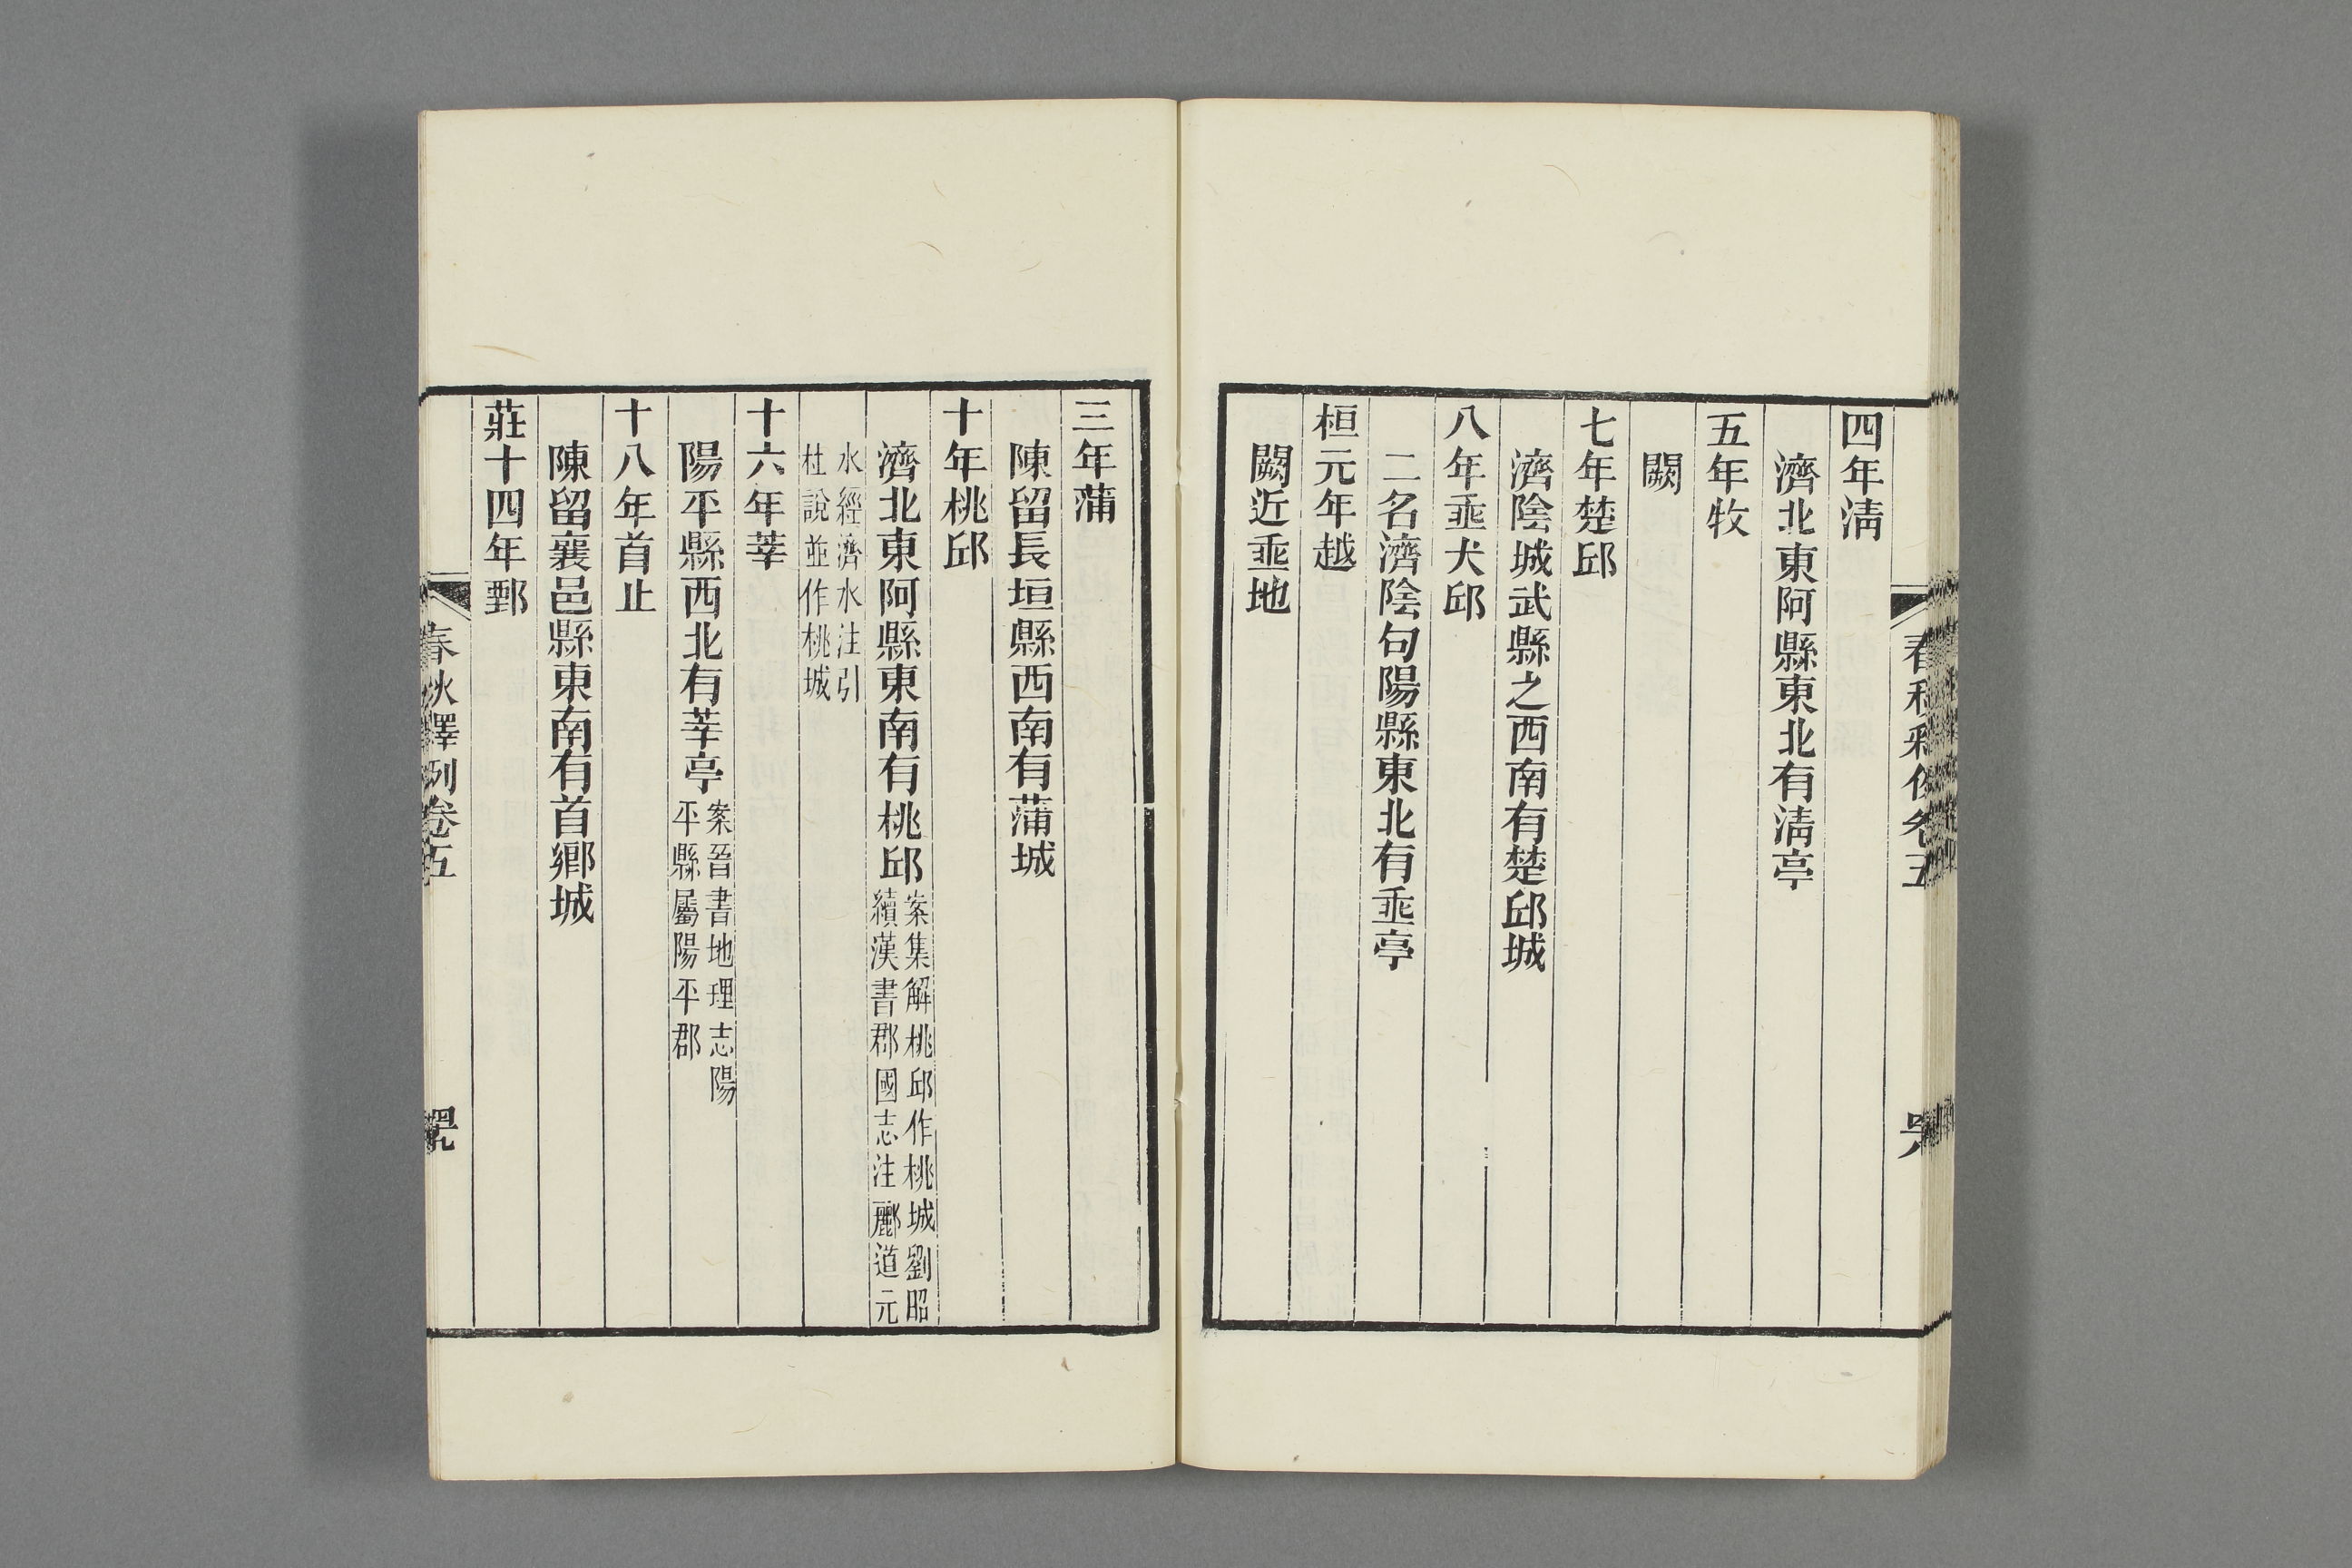 四年淸
濟北東阿縣東北有淸亭
五年牧
闕
七年楚邱
濟陰城武縣之西南有楚邱城
八年垂犬邱
二名濟陰句陽縣東北有垂亭
桓元年越
闕近垂地
三年蒲
陳留長垣縣西南有蒲城
十年桃邱
濟北東阿縣東南有桃邱
案集解桃邱作桃城劉昭
續漢書郡國志注酈道元
水經濟水注引
杜說並作桃城
十六年莘
陽平縣西北有莘亭
案晉書地理志陽
平縣屬陽平郡
十八年首止
陳留襄邑縣東南有首鄉城
莊十四年鄄
春秋釋例卷五